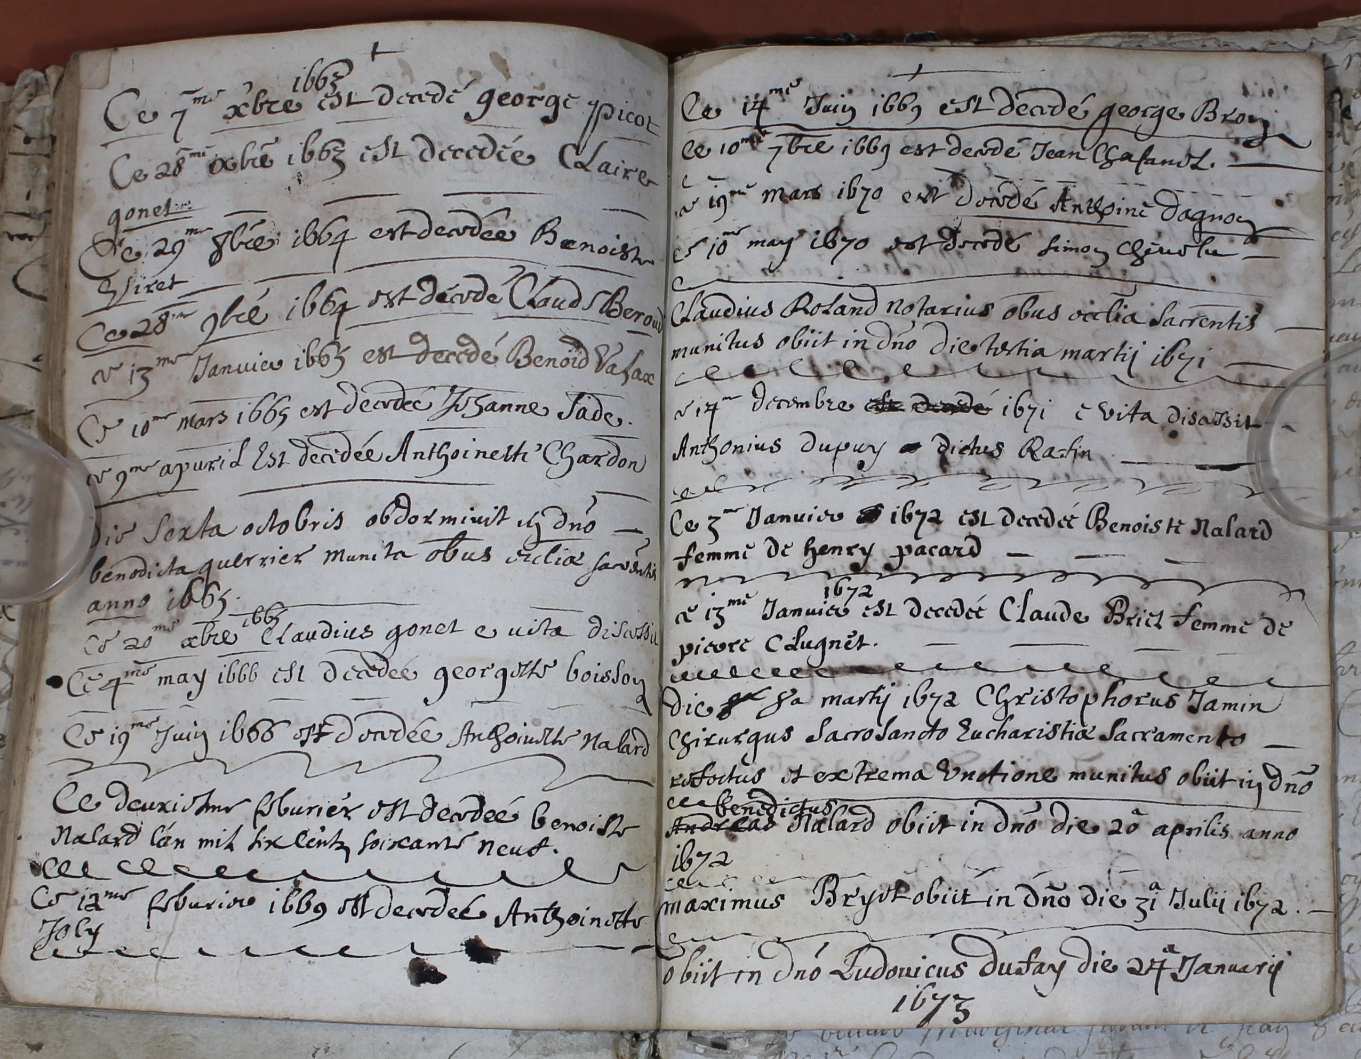 1663
Ce 7me xbre est decedé george picot
Ce 28me xbre 1663 est decedée Claire
gonet
Ce 29me 8bre 1664 est decedée Benoiste
Ce 28me 9bre 1664 est decedé Claude Beroud
ce 13me Janvier 1665 est decedé Benoid
Ce 10me mars 1665 est decedée Jehanne Fade.
ce 9me apuril Est decedée Anthoinette Chardon
die Sexta octobris obdormiuit in dno
benedicta guerrier munita obus ecclia sacrentis
anno 1665.
1665
Ce 20me xbre Claudius gonet e uita discessit
Ce 4me may 1666 est decedée georgette boisson
Ce 19me Juin 1666 est decedée Anthoinette Nalard
Ce deuxiesme feburier est decedée benoiste
Nalard lan mil six centz soixante neuf.
Ce 12me feburier 1669 est decedée Anthoinette
Joly
Ce 14me Juin 1669 est decedé george Bron
Ce 10me 7bre 1669 est decedé Jean Chafanel.
ce 19me mars 1670 est decedé Anthoine dagnon
ce 10me may 1670 est decedé simon
Claudius Roland notarius obus ecclia Sacrentis
munitus obiit in dno die tertia martij 1671
ce 14me decembre est decedé 1671 e vita disassit
Anthonius dupuy dictus Ratin
Ce 3me Janvier 1672 est decedée Benoiste Nalard
femme de henry pacard
1672
ce 13me Janvier est decedée Claude Briel femme de
pierre Clugnet.
die martij 1672 Christophorus Jamin
Chirurgus Sacrosancto Eucharistiæ Sacramento
refectus et extrema Unctione munitus obiit in dno
benedictus
Andreas Nalard obiit in dno die 20a aprilis anno
1672
maximus Bryet obiit in dno die 31a Julii 1672.
obiit in dno Ludovicus dufay die 24a Januarij
1673